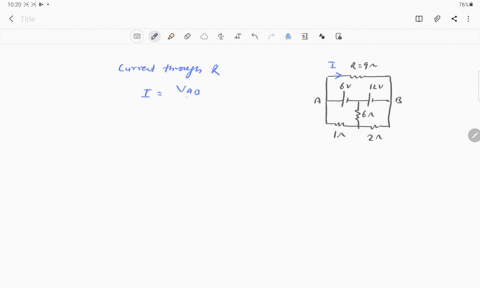 10:20
76%
Title
Current through R
I = VAB
I R=9Ω
6V 12V
A B
6Ω
1Ω 2Ω